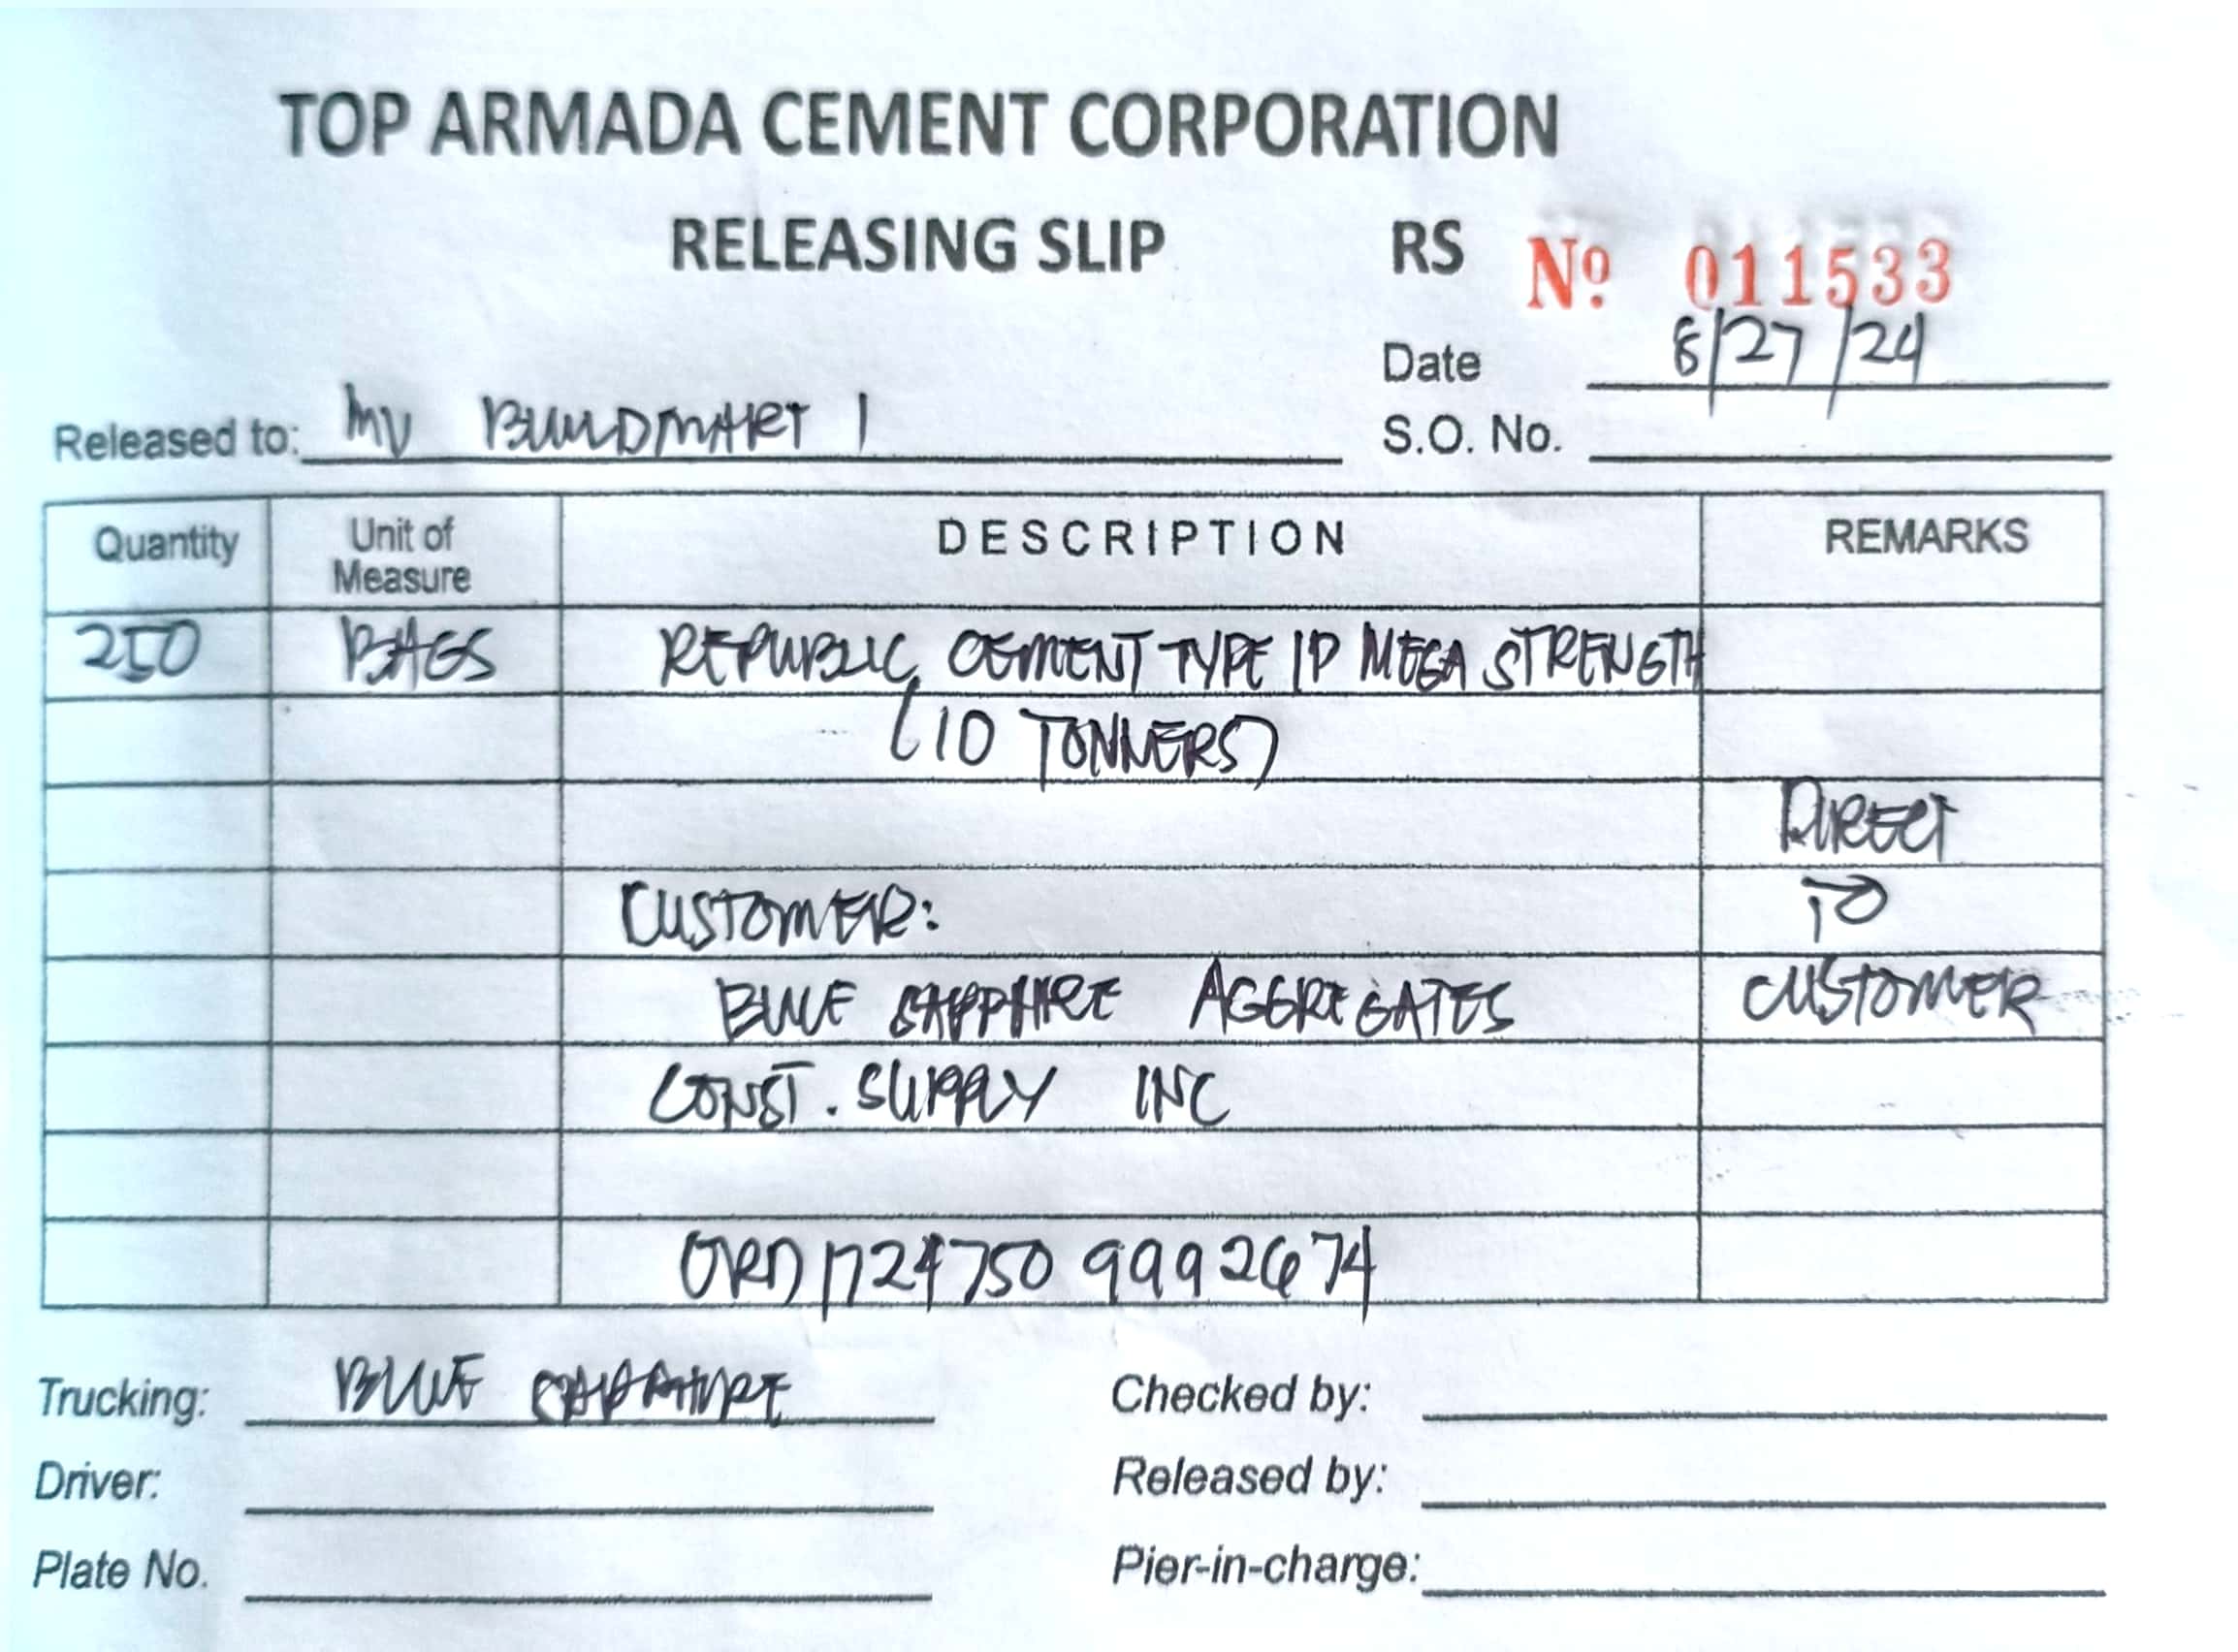 TOP ARMADA CEMENT CORPORATION
RELEASING SLIP RS Nº 011533
Date 8/27/24
Released to: MV BUILDMART 1 S.O. No.
Quantity Unit of Measure DESCRIPTION REMARKS
250 BAGS REPUBLIC CEMENT TYPE 1P MEGA STRENGTH
(10 TONNERS)
DIRECT
CUSTOMER: TO
BLUE SAPPHIRE AGGREGATES CUSTOMER
CONST. SUPPLY INC
ORD1724750 9992674
Trucking: BLUE SAPPHIRE Checked by:
Driver: Released by:
Plate No. Pier-in-charge: